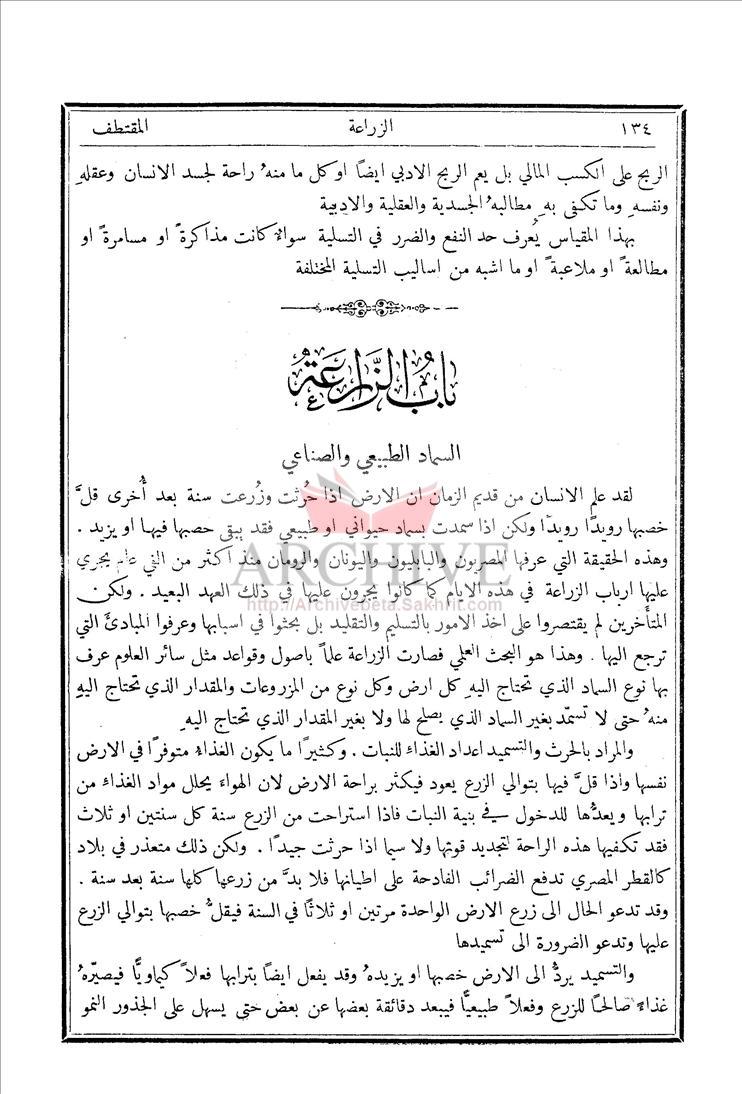 ١٣٤ الزراعة المقتطف
الربح على الكسب المالي بل يعم الربح الادبي ايضًا او كل ما منهُ راحة لجسد الانسان وعقلهِ
ونفسهِ وما تكفى بهِ مطالبهُ الجسدية والعقلية والادبية
بهذا المقياس يُعرف حد النفع والضرر في التسلية سواءٌ كانت مذاكرةً او مسامرةً او
مطالعةً او ملاعبةً او ما اشبه من اساليب التسلية المختلفة
بابُ الزراعةِ
السماد الطبيعي والصناعي
لقد علم الانسان من قديم الزمان ان الارض اذا حُرثت وزُرعت سنة بعد أُخرى قلَّ
خصبها رويدًا رويدًا ولكن اذا سمدت بسماد حيواني او طبيعي فقد يبقى خصبها فيها او يزيد .
وهذه الحقيقة التي عرفها المصريون والبابليون واليونان والرومان منذ اكثر من الفي عام يجري
ARCHIVE
عليها ارباب الزراعة في هذه الايام كما كانوا يجرون عليها في ذلك العهد البعيد . ولكن
http://Archivebeta.Sakhrit.com
المتأخرين لم يقتصروا على اخذ الامور بالتسليم والتقليد بل بحثوا في اسبابها وعرفوا المبادئ التي
ترجع اليها . وهذا هو البحث العلمي فصارت الزراعة علمًا باصول وقواعد مثل سائر العلوم عرف
بها نوع السماد الذي تحتاج اليهِ كل ارض وكل نوع من المزروعات والمقدار الذي تحتاج اليهِ
منهُ حتى لا تسمّد بغير السماد الذي يصلح لها ولا بغير المقدار الذي تحتاج اليهِ
والمراد بالحرث والتسميد اعداد الغذاء للنبات . وكثيرًا ما يكون الغذاء متوفرًا في الارض
نفسها واذا قلَّ فيها بتوالي الزرع يعود فيكثر براحة الارض لان الهواء يحلل مواد الغذاء من
ترابها ويعدُّها للدخول في بنية النبات فاذا استراحت من الزرع سنة كل سنتين او ثلاث
فقد تكفيها هذه الراحة لتجديد قوتها ولا سيما اذا حرثت جيدًا . ولكن ذلك متعذر في بلاد
كالقطر المصري تدفع الضرائب الفادحة على اطيانها فلا بدَّ من زرعها كلها سنة بعد سنة .
وقد تدعو الحال الى زرع الارض الواحدة مرتين او ثلاثًا في السنة فيقلُّ خصبها بتوالي الزرع
عليها وتدعو الضرورة الى تسميدها
والتسميد يردُّ الى الارض خصبها او يزيدهُ وقد يفعل ايضًا بترابها فعلاً كيماويًّا فيصيّرهُ
غذاءً صالحًا للزرع وفعلاً طبيعيًّا فيبعد دقائقة بعضها عن بعض حتى يسهل على الجذور النمو